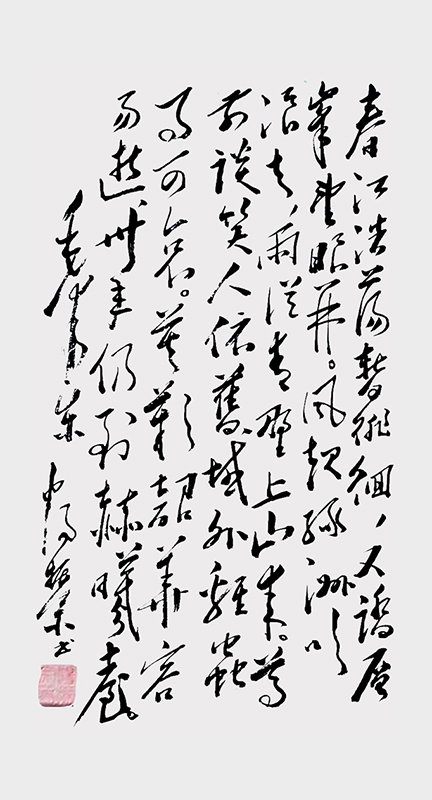 春江浩蕩暫徘徊，又踏層
峯望眼开。风起绿洲吹
浪去，雨從青野上山来。尊
前谈笑人依舊，域外雞蟲
事可哀。莫歎韶華容
易逝，卅年仍到赫曦臺。
毛泽东